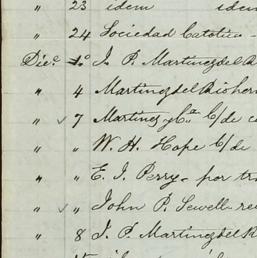 " 23 idem idem
" 24 Sociedad Catolica -
Dic.e 1.o J. P. Martinez del R
" 4 Martinez del Rio herm
" ✓ 7 Martinez y C.a C/ de c
" " W. H. Hope C/ de
" " E. I. Perry - por tr
" ✓ " John P. Sewell - re
" 8 J. P. Martinez del R